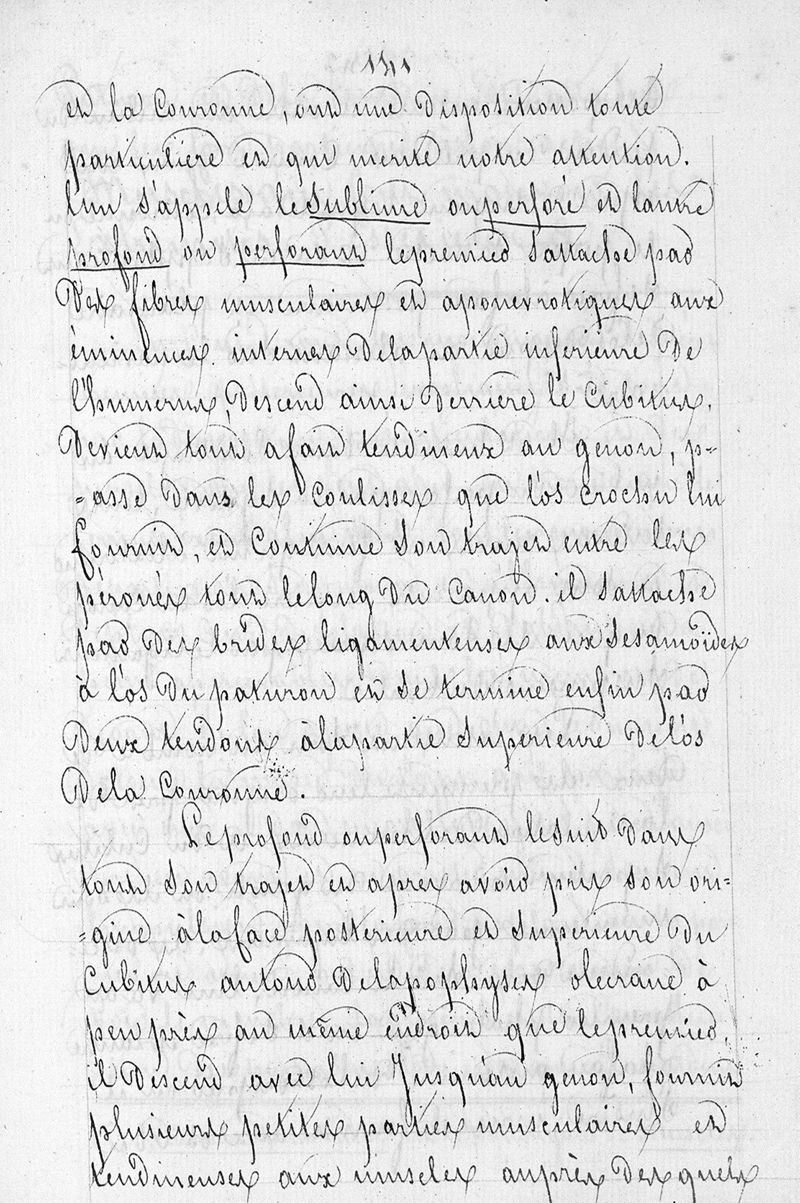 141
et la Couronne, ont une Disposition toute
particuliere et qui merite notre attention.
l'un s'appele le Sublime ou perforé et lautre
profond ou perforant le premier sattache par
Des fibres musculaires et aponevrotiques aux
éminences internes Delapartie inferieure De
l'humerus, Descend ainsi Derrière le Cubitus.
Devient tout afait tendineux au genou, p-
-asse Dans les Coulisses que l'os crochu lui
fournit, et Continue Son trajet entre les
péronés tout lelong Du Canon. il Sattache
par Des brides ligamenteuses aux Sesamoïdes
à l'os Du paturon et Se termine enfin par
Deux tendons àlapartie Superieure Delos
Dela Couronne.
Le profond ou perforant le Suit Dans
tout Son trajet et apres avoir pris Son ori=
=gine àlaface posterieure et Superieure Du
Cubitus autour Delapophyses olecrane à
peu près au même endroit que lepremier,
il Descend avec lui Jusqu'au genou, fournit
plusieurs petites parties musculaires et
tendineuses aux muscles auprès Desquels